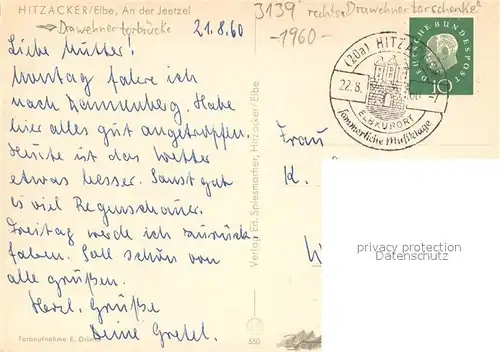 HITZACKER/Elbe, An der Jeetzel
Drawehnertorbrücke
21.8.60
3139 rechts: "Drawehnertorschenke"
-1960-
Liebe Mutter!
Montag fahre ich
nach Dannenberg. Habe
hier alles gut angetroffen.
Heute ist das Wetter
etwas besser. Sonst gab
es viel Regenschauer.
Freitag werde ich zurück-
fahren. Soll schön von
alle grüßen.
Herzl. Grüße
Deine Gretel.
Farbaufnahme E.
Verlag Ed. Spiesmacher, Hitzacker/Elbe
550
(20a) HITZACKER
22.8.
ELBKURORT
Sommerliche Musiktage
DEUTSCHE BUNDESPOST
10
Frau
K.
privacy protection
Datenschutz